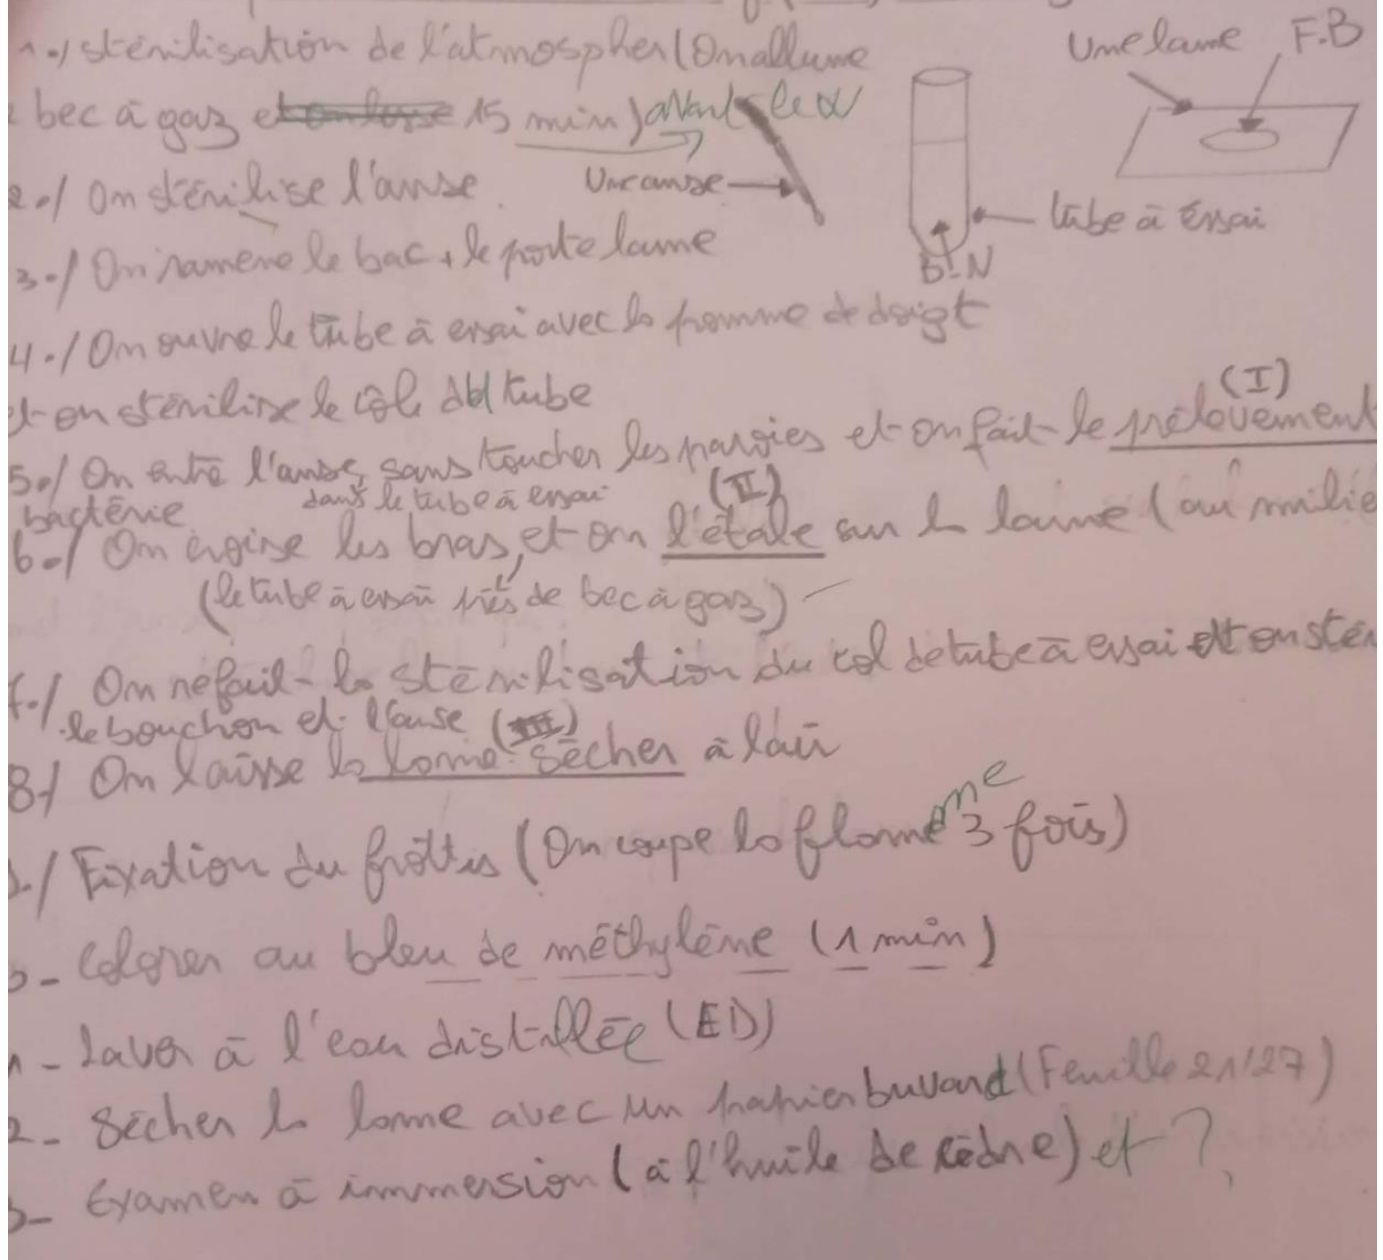 1./ stérilisation de l'atmospher (On allume
bec à gaz 15 min) avant le
Une lame F.B
2./ On stérilise l'anse.
Une anse
tube à éssai
3./ On ramene le bac + le porte lame
B.N
4./ On ouvre le tube à essai avec la pomme de doigt
et on stérilise le col du tube
(I)
5./ On entre l'anse, sans toucher les paroies et on fait le prélevement
bactérie dans le tube à essai
(II)
6./ On croise les bras, et on l'étale sur la lame (au milie
(le tube à essai près de bec à gaz)
7./ On refait la stérilisation du col de tube à essai et on stér
le bouchon et l'anse (III)
8./ On laisse la lame sécher à l'air
./ Fixation du frottis (On coupe la flamme 3 fois)
- Colorer au bleu de méthylène (1 min)
1 - Laver à l'eau distillée (ED)
2 - Sécher la lame avec un papier buvard (Feuille 21/27)
3 - Examen à immersion (à l'huile de cèdre) et ?